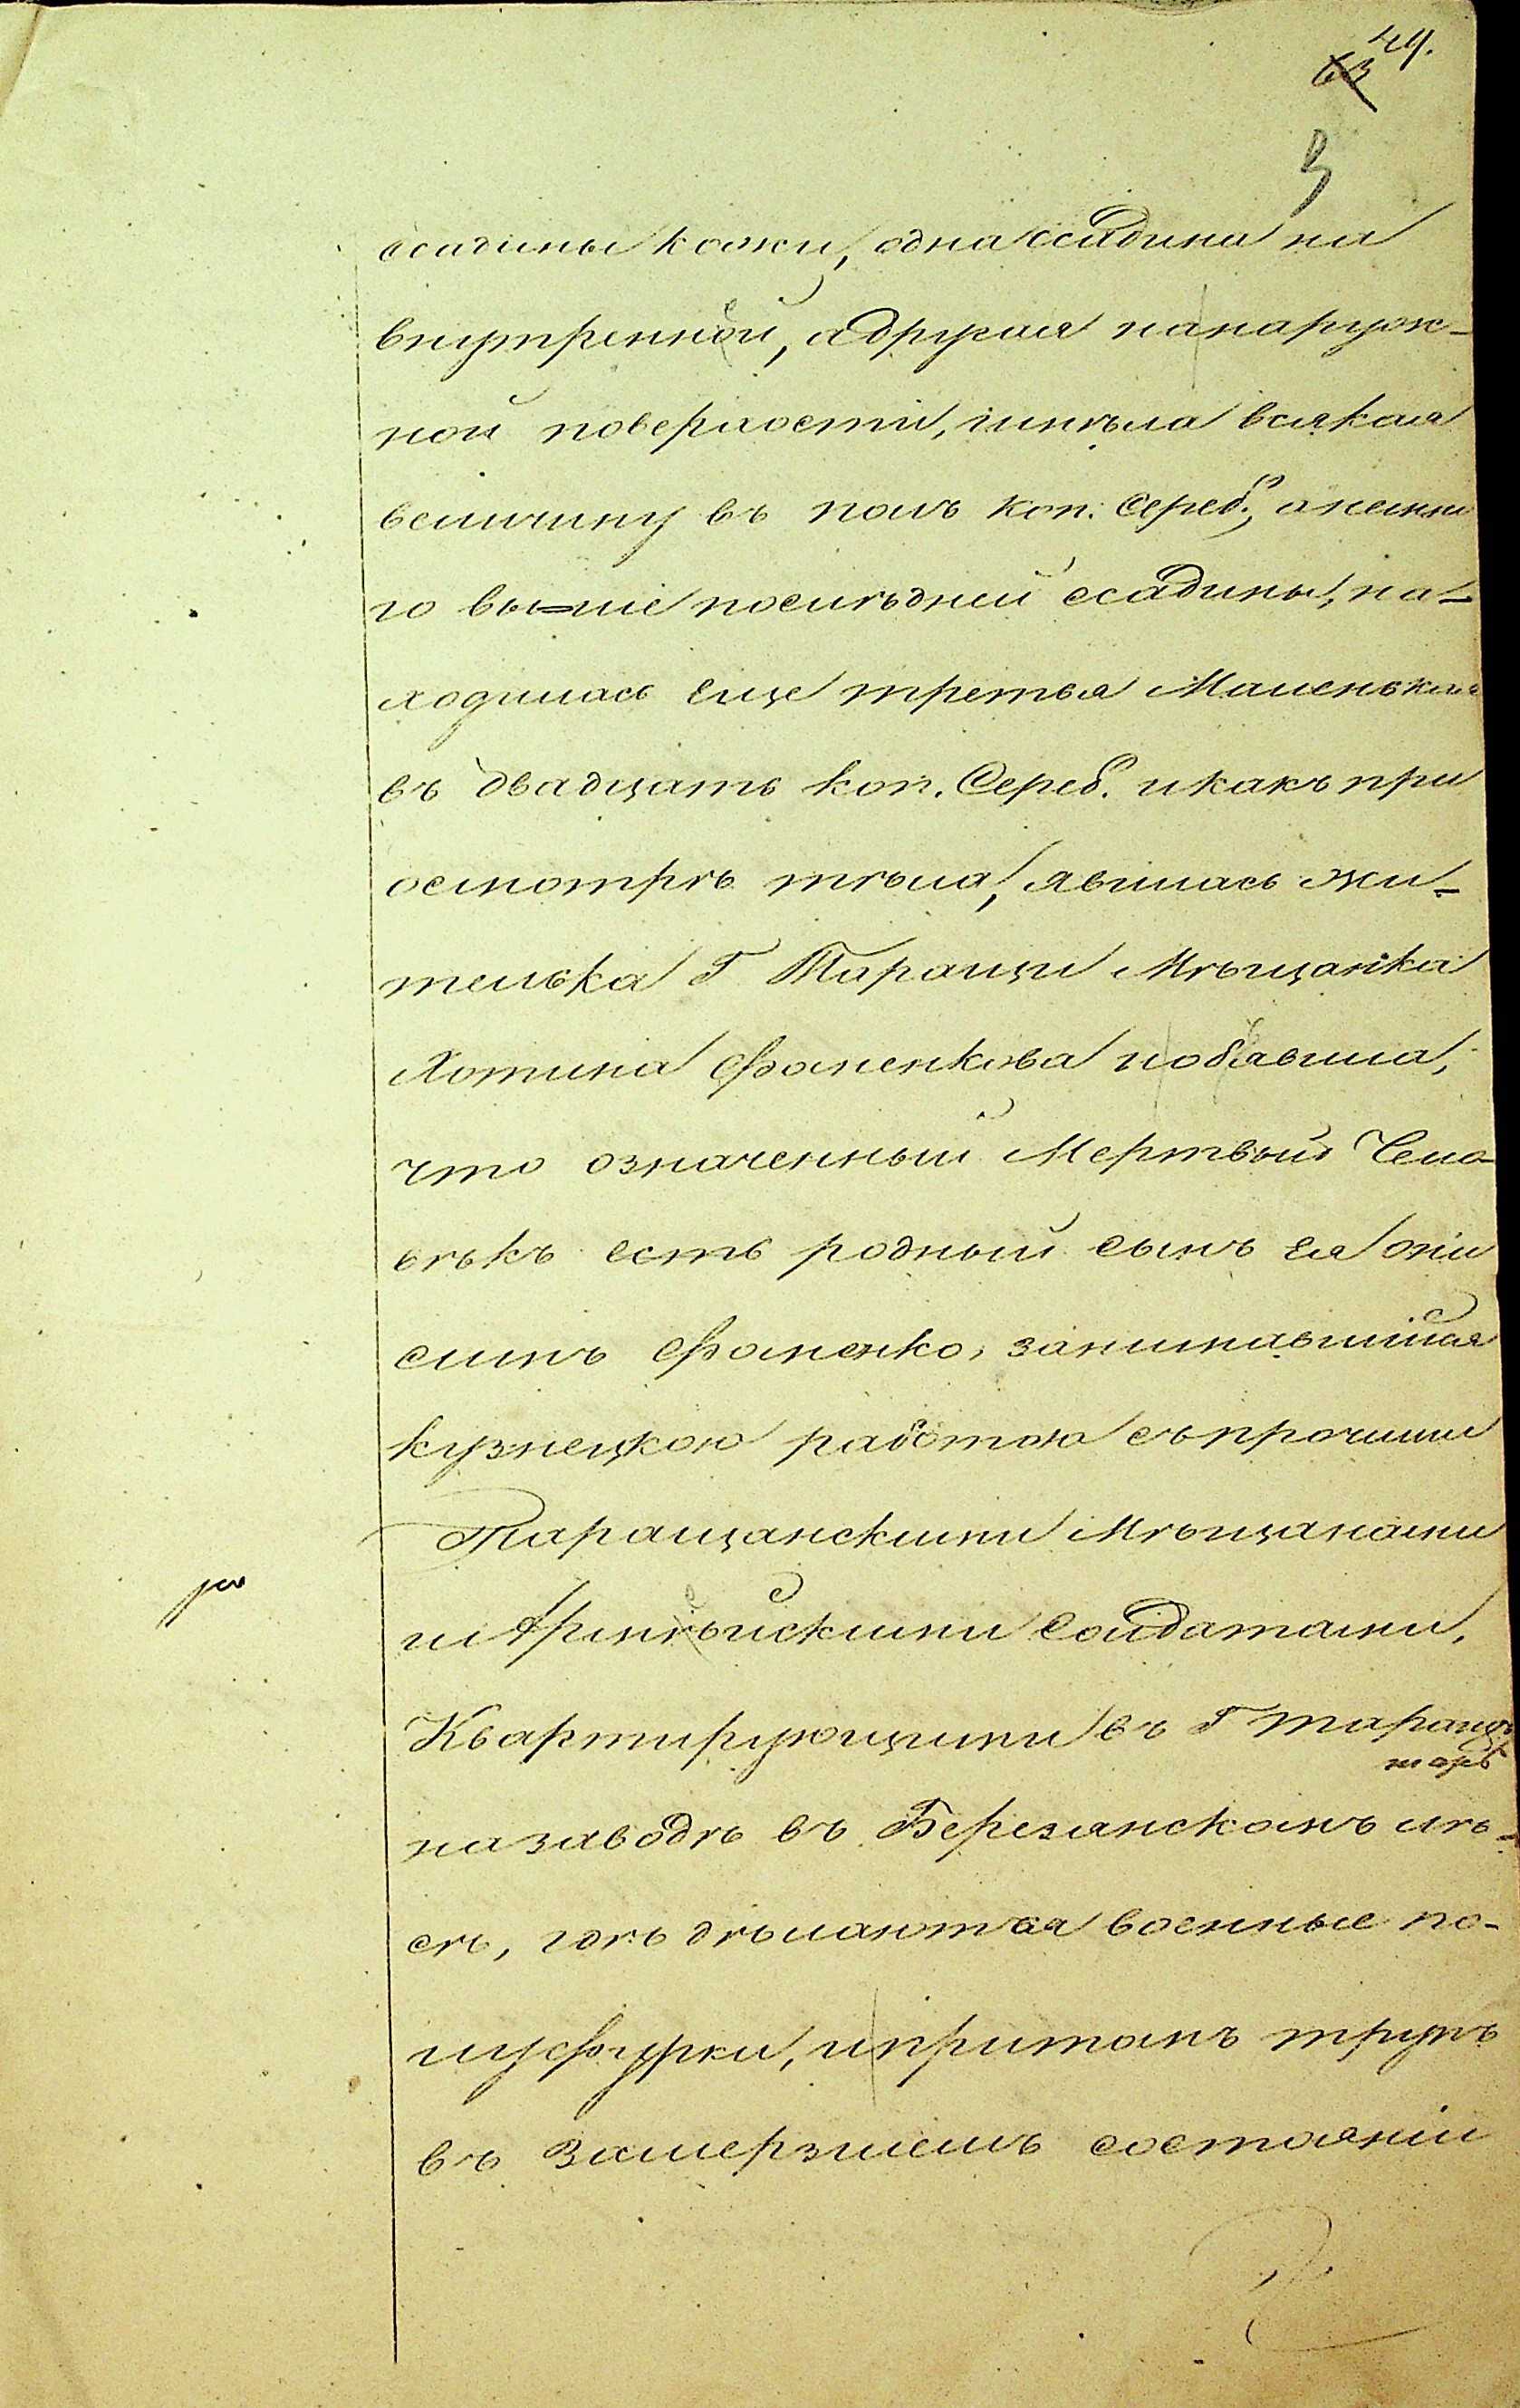 49.
63
ссадины кожи, одна ссадина на
внутренной, а другая на наруж-
ной поверхости, имѣла всякая
величину въ полъ коп. сереб., а немно
го выше послѣдней ссадины, на-
ходилась еще третья Маленькая
въ двадцать коп. Сереб. и какъ при
осмотрѣ тѣла, явилась жи-
телька Г Таращи Мѣщанка
Хотина Фоменкова и объявила,
что означенный Мертвый Чело-
вѣкъ есть родный сынъ ея Они
симъ Фоменко, занимавшийся
кузнецкою работою съ прочими
Таращанскими Мѣщанами
и Армѣйскими Солдатами,
Квартирующими въ Г Таращѣ
на заводѣ въ Березанскомъ лѣ-
сѣ, гдѣ дѣлаются военные по-
луфурки, и притомъ трупъ
въ замерзшемъ состояніи